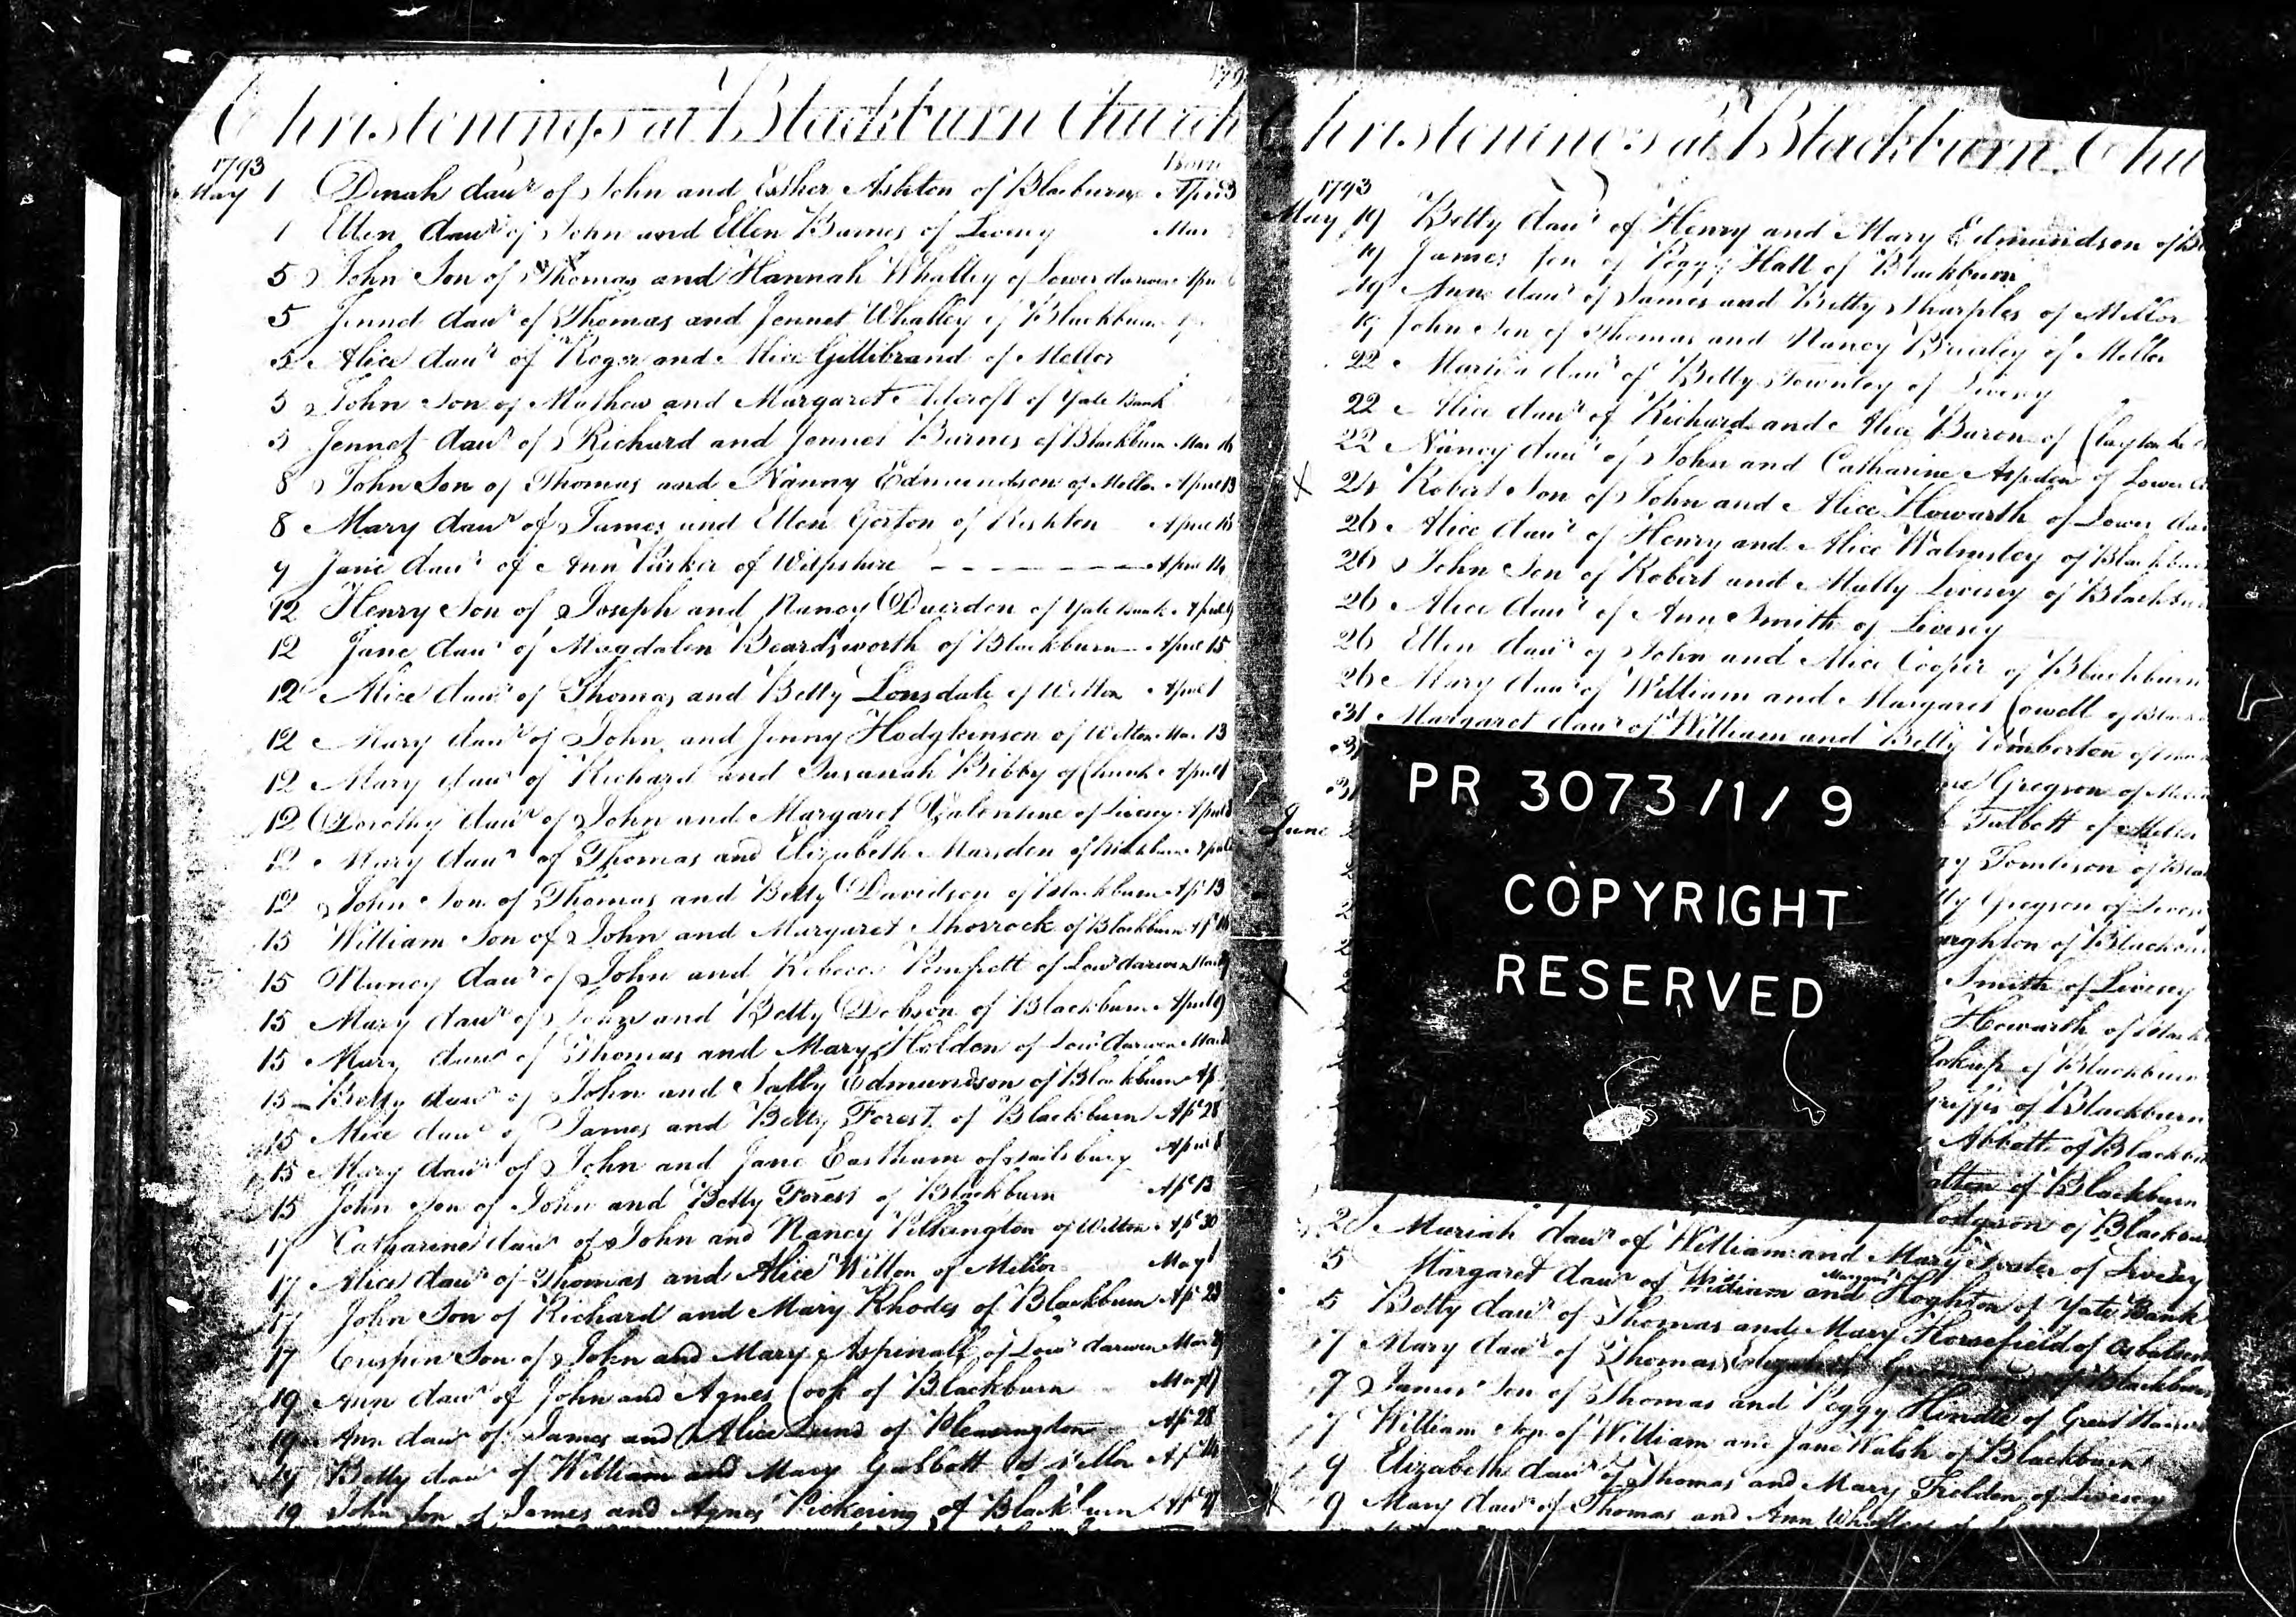 179
Christenings at Blackburn Church
1793 Born
May 1 Dinah daur of John and Esther Ashton of Blackburn April 3
1 Ellen daur of John and Ellen Barnes of Livesey Mar
5 John Son of Thomas and Hannah Whalley of Lower darwen Apri
5 Jennet daur of Thomas and Jennet Whalley of Blackburn
5 Alice daur of Roger and Alice Gillibrand of Mellor
5 John Son of Mathew and Margaret Aldcroft of Yate Bank
5 Jennet daur of Richard and Jennet Barnes of Blackburn Mar 16
8 John Son of Thomas and Nanny Edmundson of Mellor April 13
8 Mary daur of James and Ellen Gorton of Rishton April 13
9 Jane daur of Ann Parker of Wilpshire April 14
12 Henry Son of Joseph and Nancy Duerden of Yate Bank April 9
12 Jane daur of Magdalen Beardsworth of Blackburn April 15
12 Alice daur of Thomas and Betty Lonsdale of Witton April 1
12 Mary daur of John and Jenny Hodgkinson of Witton Mar 13
12 Mary daur of Richard and Susanah Bibby of Chunk April
12 Dorothy daur of John and Margaret Valentine of Livesey April
12 Mary daur of Thomas and Elizabeth Marsden of Blackburn April
12 John Son of Thomas and Betty Davidson of Blackburn Apl 13
15 William Son of John and Margaret Shorrock of Blackburn Apl
15 Nancy daur of John and Rebecca Pomfrett of Lowr darwen Mar
15 Mary daur of John and Betty Dobson of Blackburn April 9
15 Mary daur of Thomas and Mary Holden of Lowr darwen Mar
15 Betty daur of John and Sally Edmundson of Blackburn Apl
15 Alice daur of James and Betty Forest of Blackburn Apl 28
15 Mary daur of John and Jane Eastham of Sailsbury April 8
15 John Son of John and Betty Forest of Blackburn Apl 13
17 Catharine daur of John and Nancy Pilkington of Witton Apl 30
17 Alice daur of Thomas and Alice Witton of Mellor May 1
17 John Son of Richard and Mary Rhodes of Blackburn Apl 23
17 Crispin Son of John and Mary Aspinall of Lowr darwen Mar
19 Ann daur of John and Agnes Cook of Blackburn May
19 Ann daur of James and Alice Lund of Pleasington Apl 28
19 Betty daur of William and Mary Gabbott of Mellor Apl
19 John Son of James and Agnes Pickering of Blackburn Apl
Christenings at Blackburn Chu
1793
May 19 Betty daur of Henry and Mary Edmundson of Bl
19 James Son of Peggy Hall of Blackburn
19 Anne daur of James and Betty Sharples of Mellor
19 John Son of Thomas and Nancy Brierley of Mellor
22 Maria daur of Betty Townley of Livesey
22 Alice daur of Richard and Alice Baron of Clayton le
22 Nancy daur of John and Catharine Aspden of Lower
X 24 Robert Son of John and Alice Haworth of Lower da
26 Alice daur of Henry and Alice Walmsley of Blackbur
26 John Son of Robert and Mally Livesey of Blackbur
26 Alice daur of Ann Smith of Livesey
26 Ellen daur of John and Alice Cooper of Blackburn
26 Mary daur of William and Margaret Cowell of Black
31 Margaret daur of William and Betty Pemberton of
31 Gregson of Mellor
31 Talbott of Mellor
June 2 Tomlison of Bla
Gregson of Livesey
2 oughton of Blackbu
2 Smith of Livesey
X Haworth of Black
of Blackburn
of Blackburn
Abbott of Blackbu
of Blackburn
of Blackbur
2 Mariah daur of William and Mary Frater of Livesey
5 Margaret daur of William and Margaret Hoghton of Yate Bank
5 Betty daur of Thomas and Mary Horsefield of
7 Mary daur of Thomas Elizabeth of Blackburn
7 James Son of Thomas and Peggy Hindle of Great Harwood
7 William Son of William and Jane Walsh of Blackburn
9 Elizabeth daur of Thomas and Mary Fielden of Livesey
X 9 Mary daur of Thomas and Ann Whalley of
PR 3073/1/9
COPYRIGHT
RESERVED